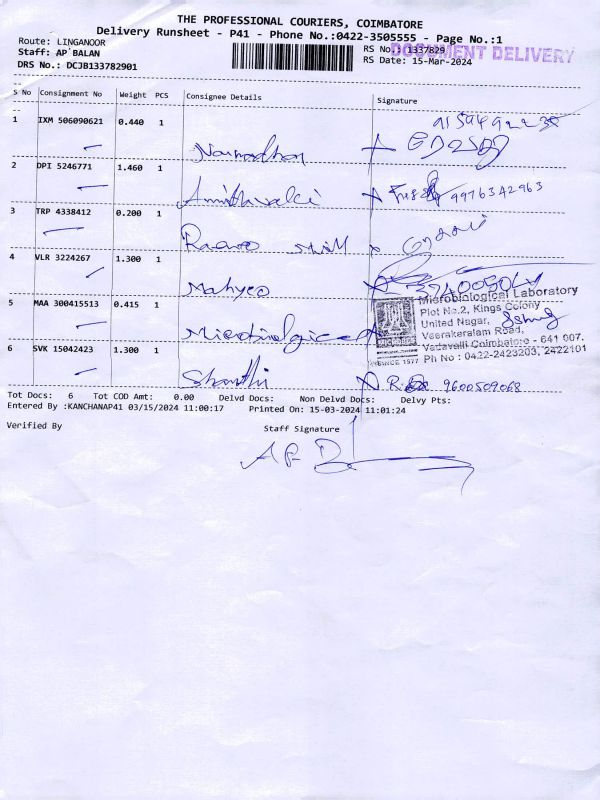 THE PROFESSIONAL COURIERS, COIMBATORE
Delivery Runsheet - P41 - Phone No.:0422-3505555 - Page No.:1
Route: LINGANOOR
RS No.: 1337829
DOCUMENT DELIVERY
Staff: AP BALAN
RS Date: 15-Mar-2024
DRS No.: DCJB133782901
S No Consignment No Weight PCS Consignee Details Signature
1 IXM 506090621 0.440 1
2 DPI 5246771 1.460 1 9976342963
3 TRP 4338412 0.200 1
4 VLR 3224267 1.300 1
5 MAA 300415513 0.415 1
Microbiological Laboratory
Plot No.2, Kings Colony
United Nagar,
Veerakeralam Road,
Vadavalli Coimbatore - 641 007.
Ph No : 0422-2423203, 2422101
SINCE 1977
6 SVK 15042423 1.300 1 Shanthi 9600509068
Tot Docs: 6 Tot COD Amt: 0.00 Delvd Docs: Non Delvd Docs: Delvy Pts:
Entered By :KANCHANAP41 03/15/2024 11:00:17 Printed On: 15-03-2024 11:01:24
Verified By
Staff Signature